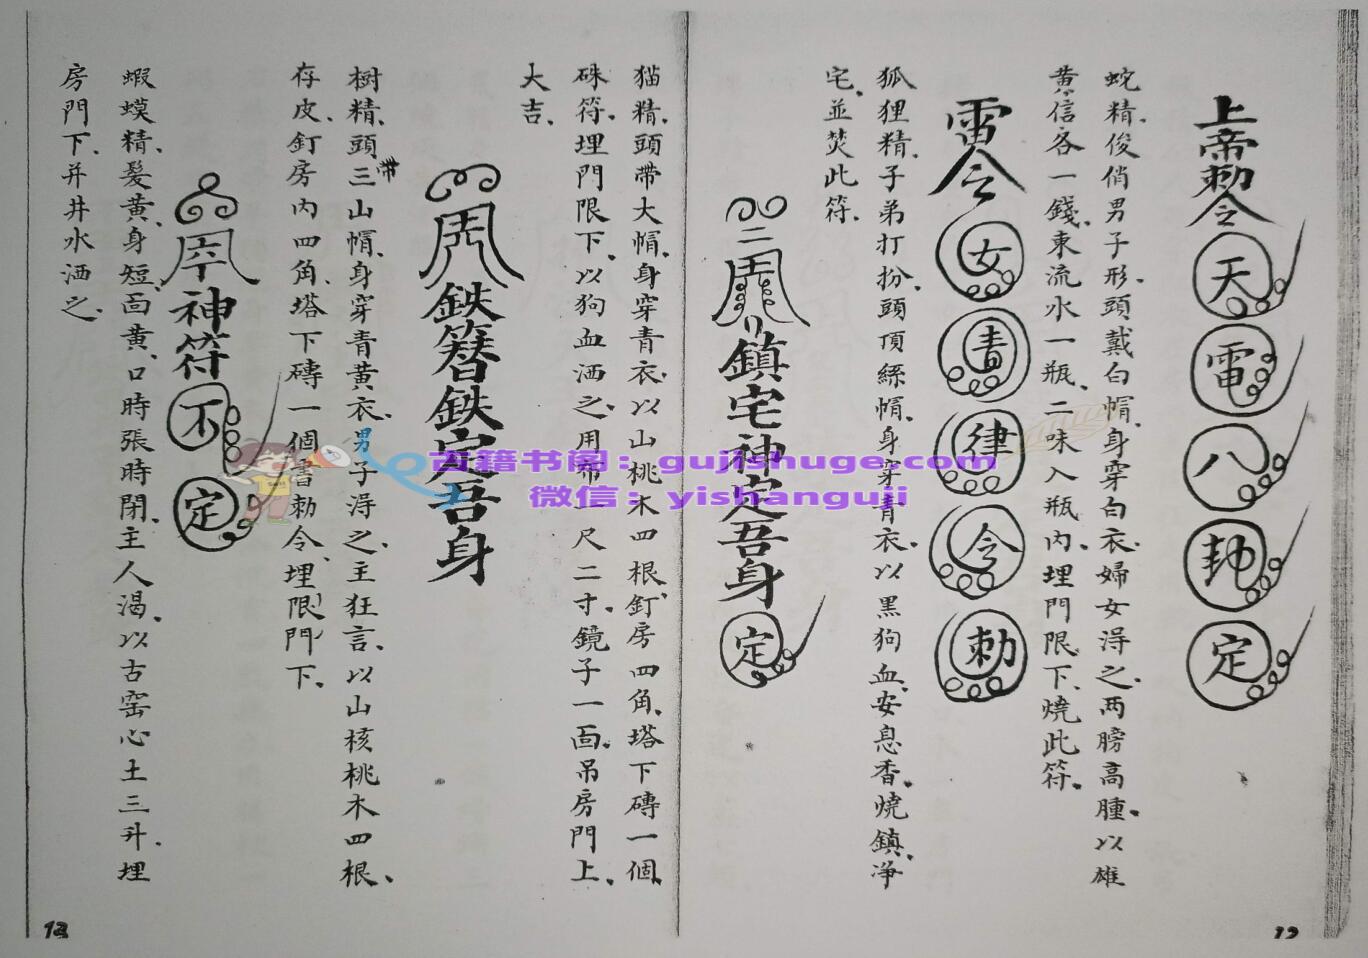 上帝勅令天電八卦定
蛇精、俊俏男子形、頭戴白帽、身穿白衣、婦女淂之、两膀高腫、以雄
黄信各一錢、東流水一瓶、二味入瓶内、埋門限下、燒此符、
雷令女青律令勅
狐狸精、子弟打扮、頭頂綵帽、身穿青衣、以黑狗血、安息香、燒鎮净
宅、並焚此符、
二鎮宅神定吾身定
猫精、頭帶大帽、身穿青衣、以山桃木四根、釘房四角、塔下磚一個、
硃符、埋門限下、以狗血洒之、用布一尺二寸、鏡子一面、吊房門上、
大吉、
鉄簪鉄定吾身
樹精、頭帶三山帽、身穿青黄衣、男子淂之、主狂言、以山核桃木四根、
存皮、釘房内四角、塔下磚一個、書勅令、埋限門下、
神符不定
蝦蟆精、髮黄、身短、面黄、口時張時閉、主人渴、以古窑心土三升、埋
房門下、并井水洒之、
12
13
古籍书阁：gujishuge.com
微信：yishanguji